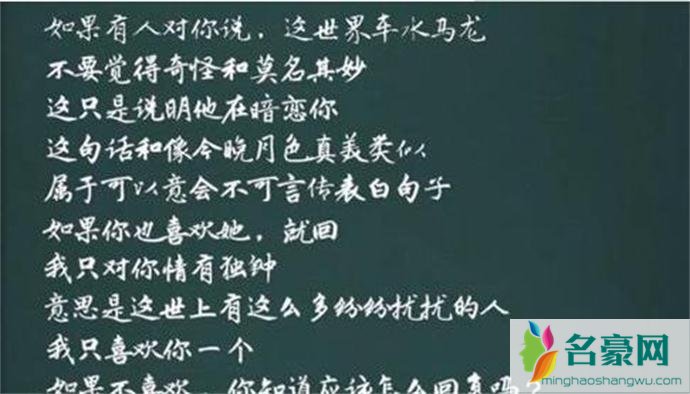 如果有人对你说，这世界车水马龙
不要觉得奇怪和莫名其妙
这只是说明他在暗恋你
这句话和像今晚月色真美类似
属于可以意会不可言传表白句子
如果你也喜欢她，就回
我只对你情有独钟
意思是这世上有这么多纷纷扰扰的人
我只喜欢你一个
如果不喜欢，你知道应该怎么回复吗？
名豪网
minghaoshangwu.com